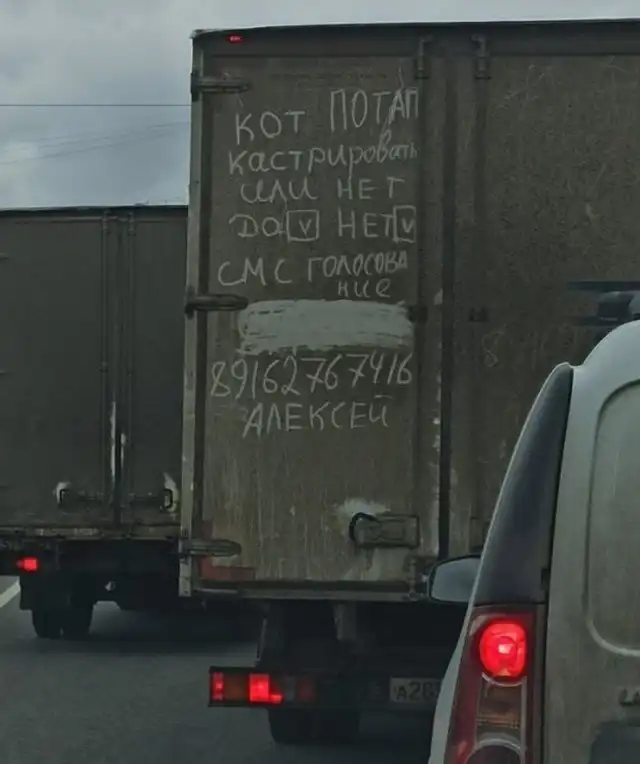 КОТ ПОТАП
кастрировать
или НЕТ
ДА V НЕТ V
СМС ГОЛОСОВА
ние
89162767416
АЛЕКСЕЙ